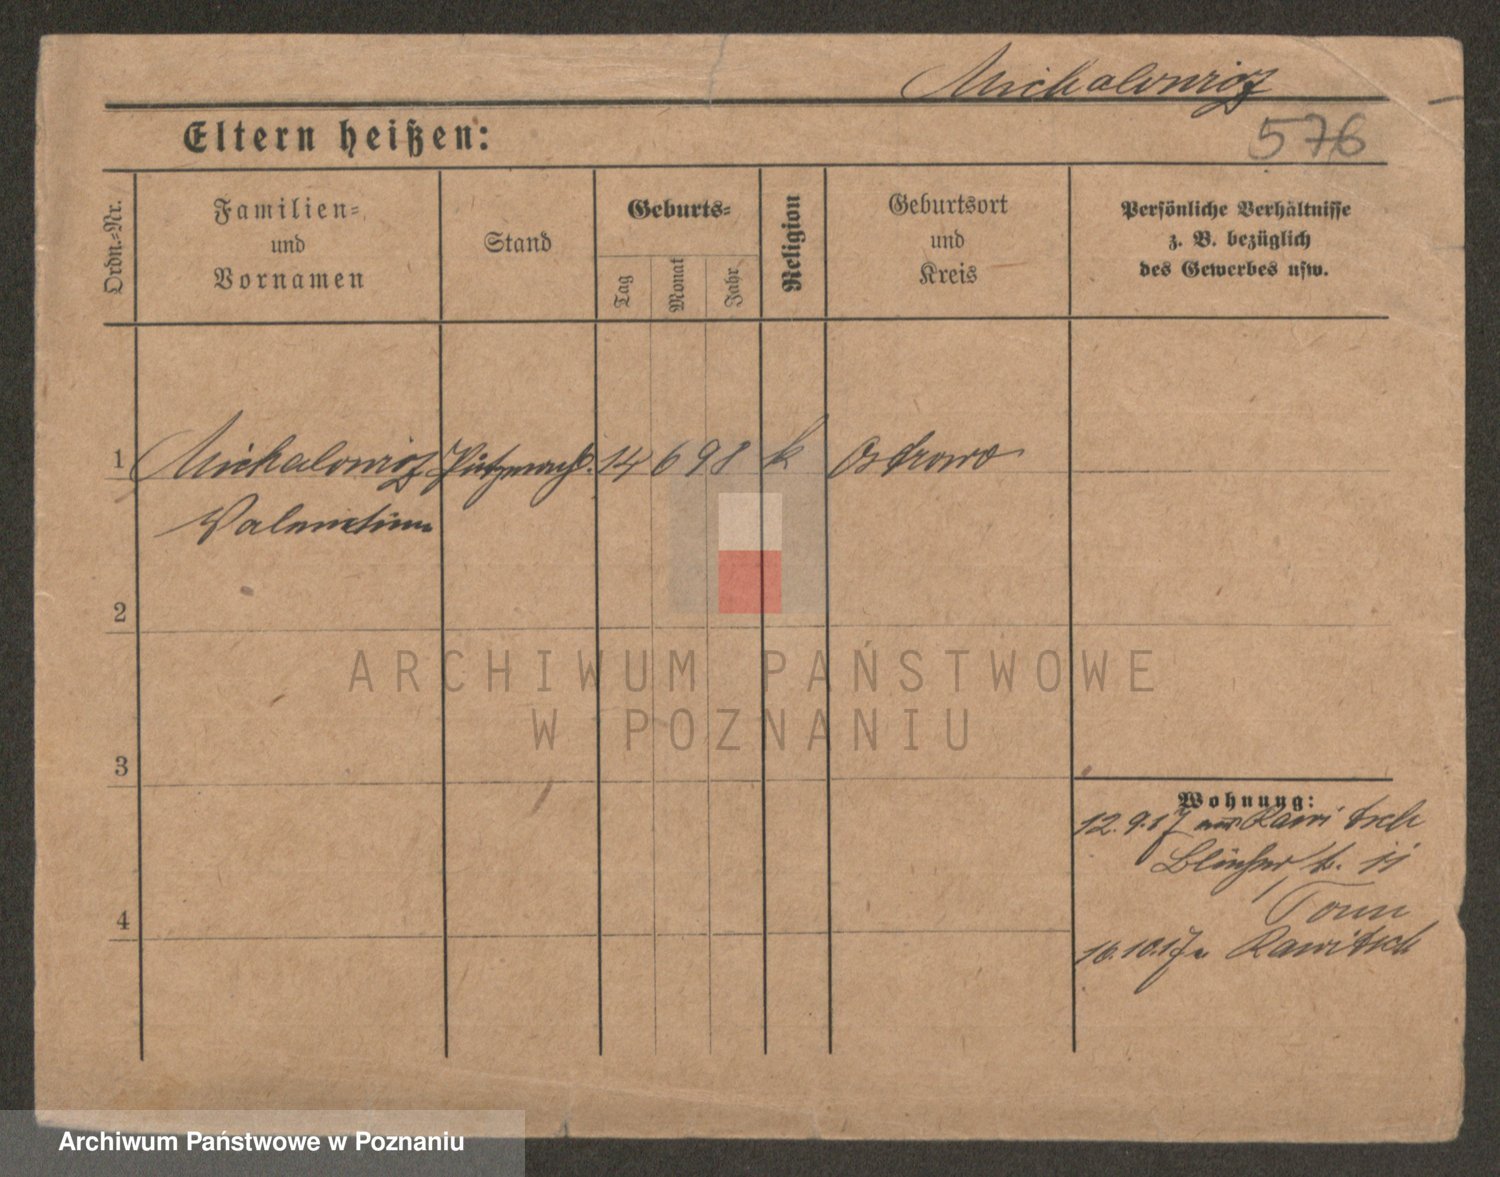 Michalowicz
Eltern heißen:
576
Ordn.-Nr.
Familien-
und
Vornamen
Stand
Geburts-
Tag
Monat
Jahr
Religion
Geburtsort
und
Kreis
Persönliche Verhältnisse
z. B. bezüglich
des Gewerbes usw.
1 Michalowicz Putzmach. 14 6 98 k Ostrowo
Valentine
2
3
4
Wohnung:
12.9.17 aus Rawitsch
Blücherstr. 11
16.10.17 n Rawitsch
ARCHIWUM PAŃSTWOWE
W POZNANIU
Archiwum Państwowe w Poznaniu